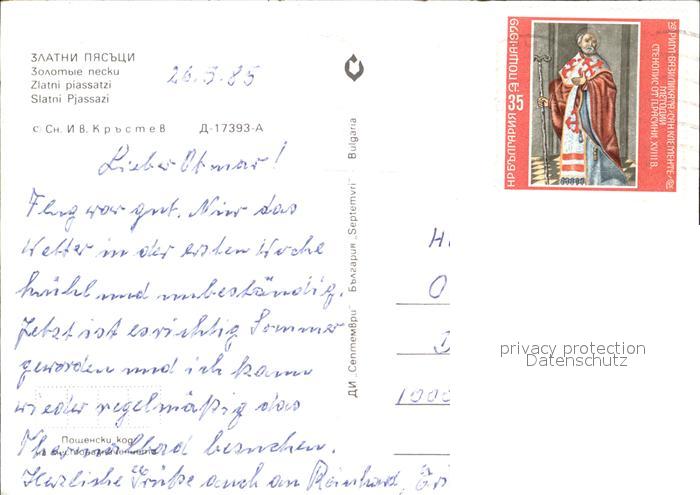 ЗЛАТНИ ПЯСЪЦИ
Золотые пески
Zlatni piassatzi
Slatni Pjassazi
26.5.85
с Сн. Ив. Кръстев Д-17393-А
Lieber Otmar!
Flug war gut. Nur das
Wetter in der ersten Woche
kühl und unbeständig.
Jetzt ist es richtig Sommer
geworden und ich kann
wieder regelmäßig das
Thermalbad besuchen.
Herzliche Grüße auch an Reinhard,
Пощенски код
ДИ „Септември" България „Septemvri" Bulgaria
НР БЪЛГАРИЯ 35 ПОЩА·1979
РИМ·БАЗИЛИКАТА „САН КЛЕМЕНТЕ"
МЕТОДИЙ
СТЕНОПИС ОТ XVIII В.
H
O
D
1000
privacy protection
Datenschutz